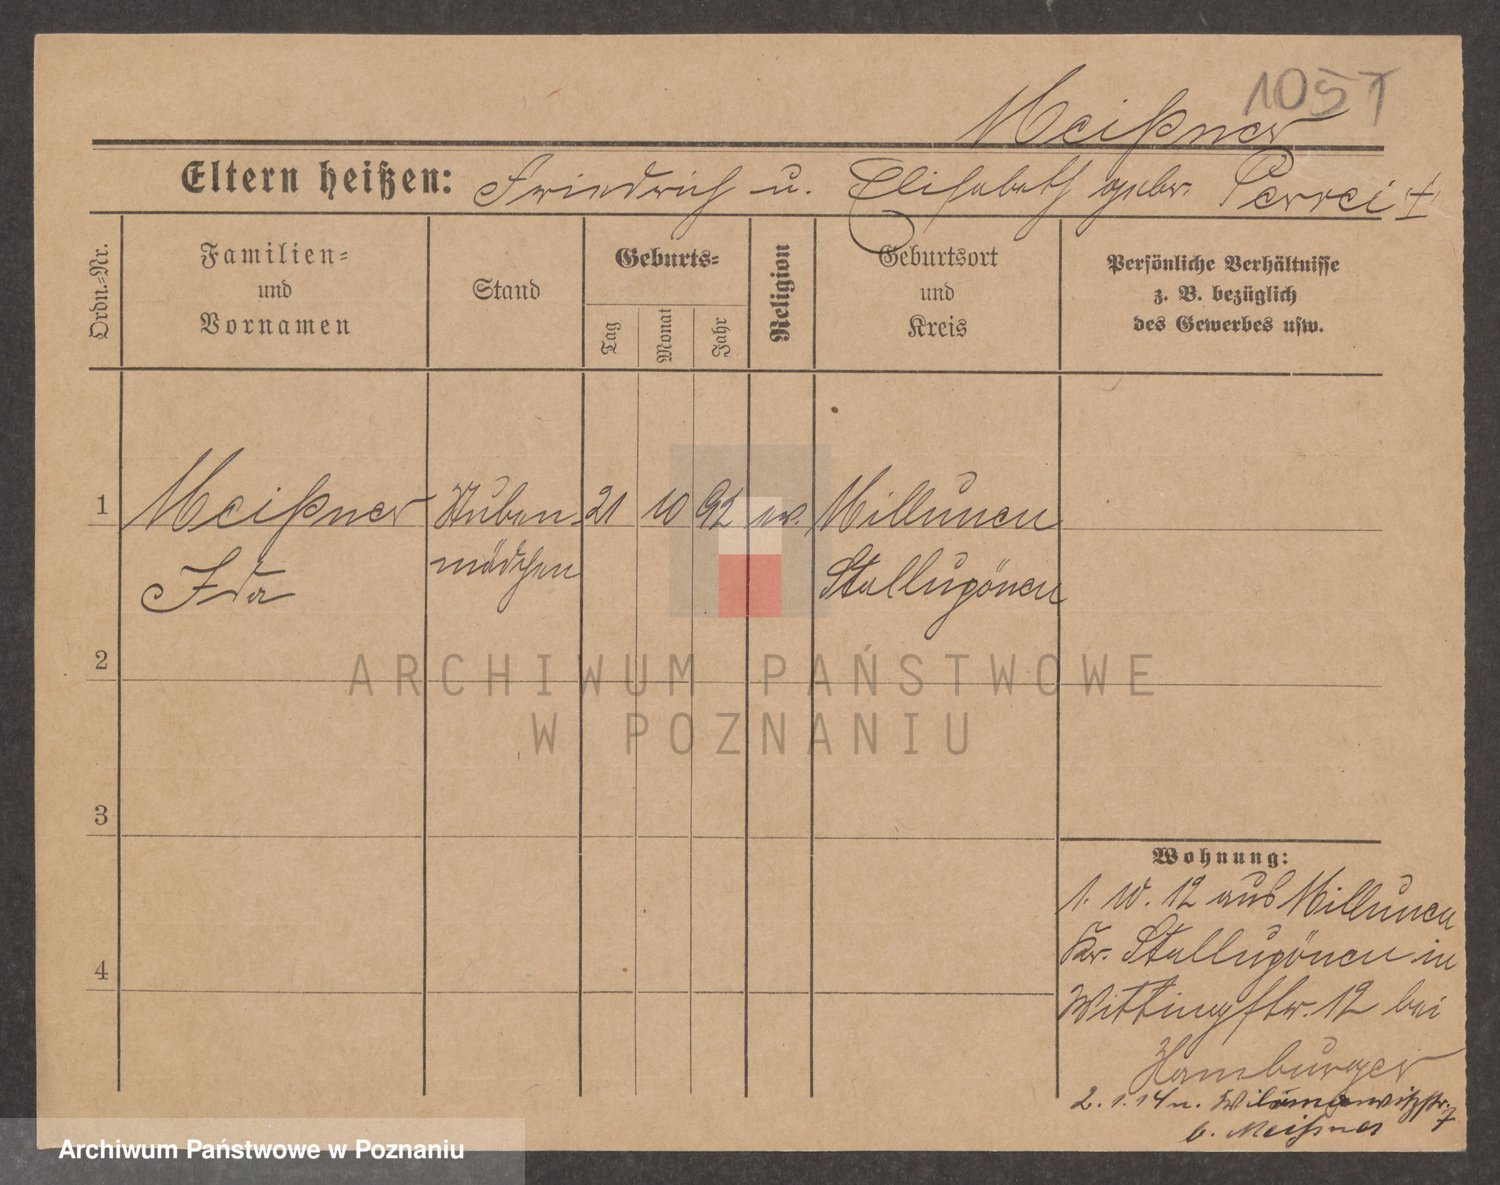 1057
Meißner
Eltern heißen: Friedrich u. Elisabeth gebr. Perrei +
Ordn.-Nr.
Familien-
und
Vornamen
Stand
Geburts-
Tag
Monat
Jahr
Religion
Geburtsort
und
Kreis
Persönliche Verhältnisse
z. B. bezüglich
des Gewerbes usw.
1 Meißner Stuben- 21 10 92 ev. Millunen
Ida mädchen Stallupönen
2
ARCHIWUM PAŃSTWOWE
W POZNANIU
3
Wohnung:
1. 10. 12 aus Millunen
Kr. Stallupönen in
Wittingstr. 12 bei
4
Hamburger
2. 1. 14 n.
b. Meißner
Archiwum Państwowe w Poznaniu